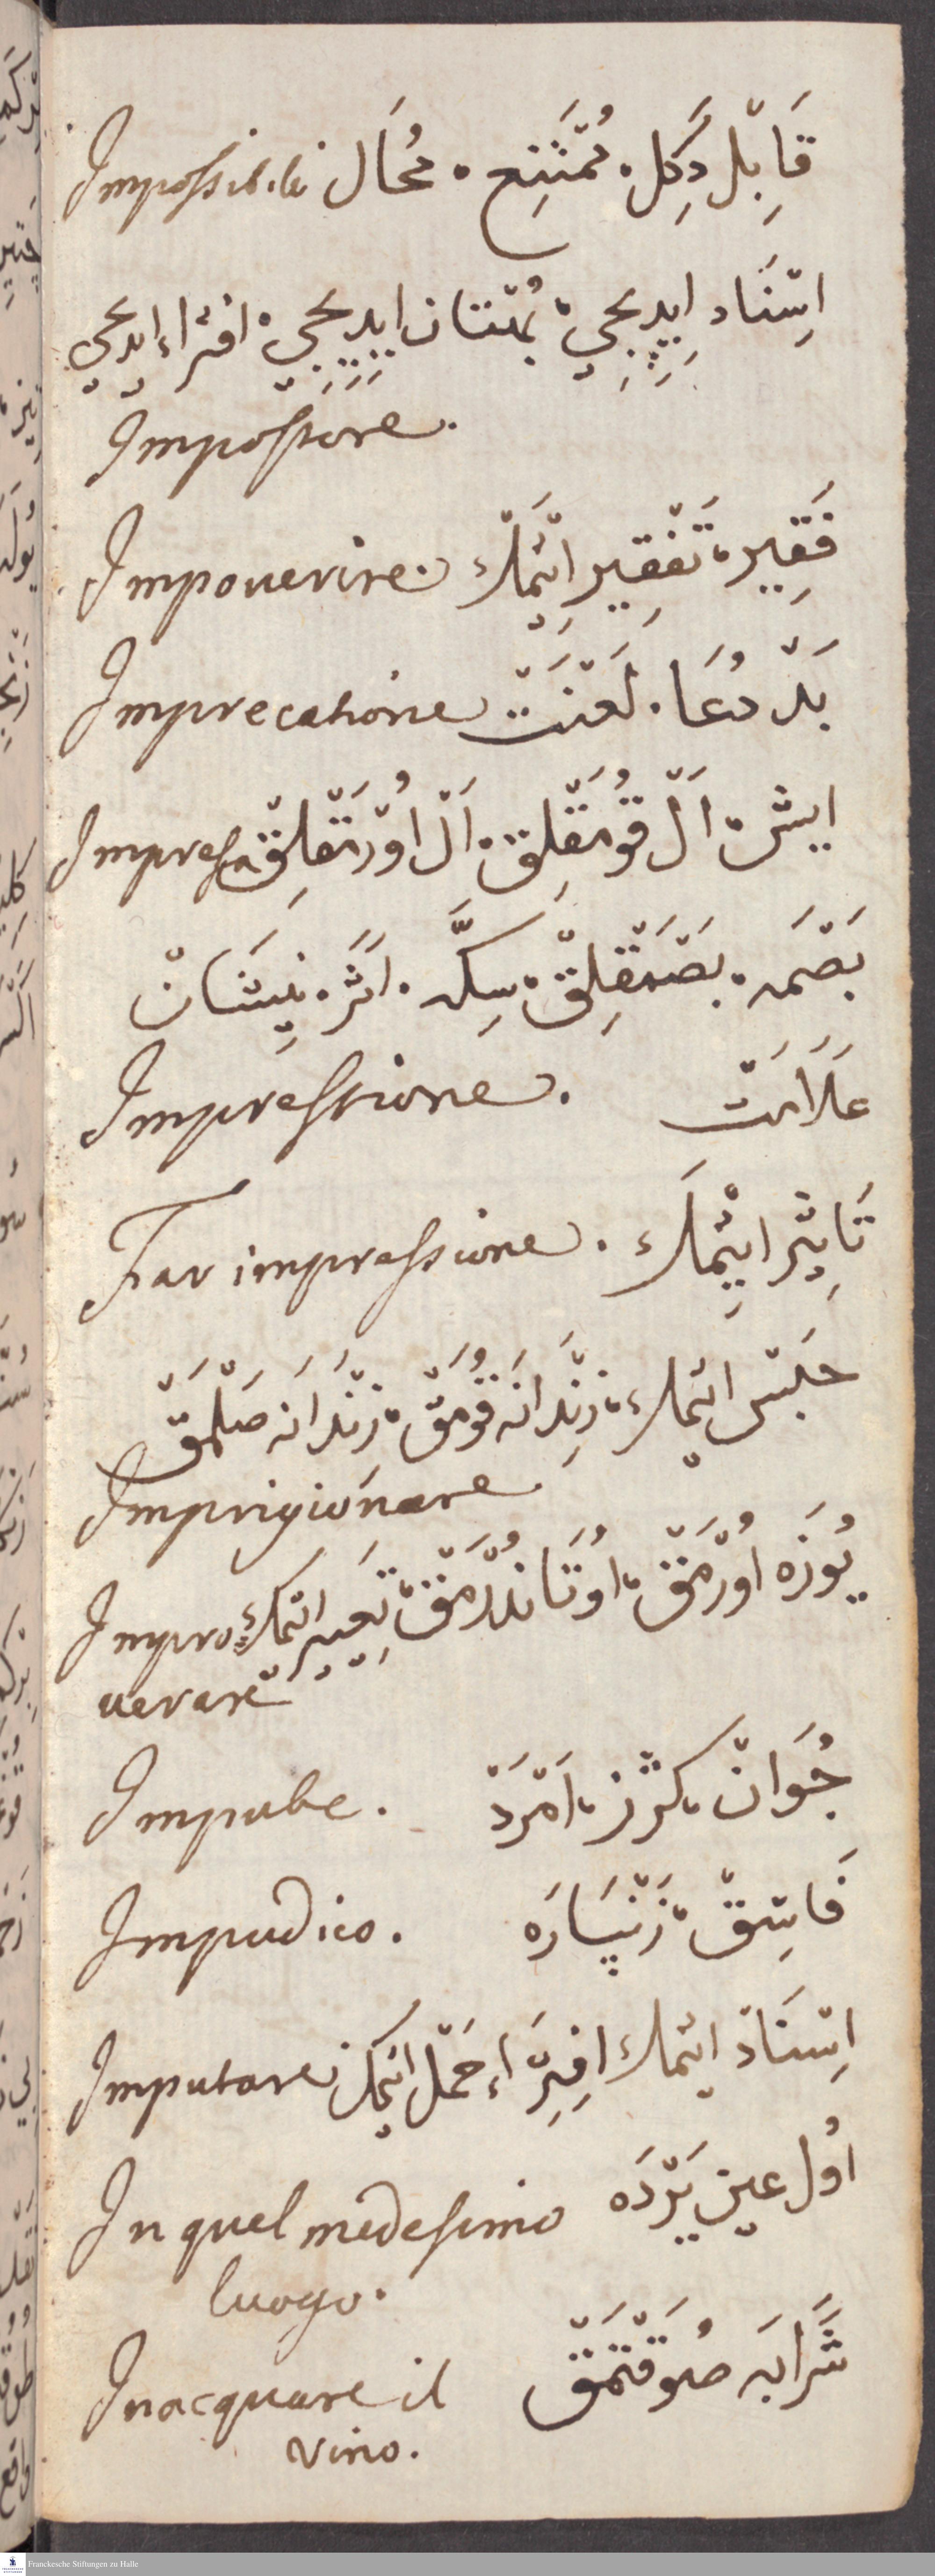 Impossibile قَابِلْ دَكِلْ. مُمْتَنِع. مُحَال
اِسْنَاد اِيدِيجِي، بُهْتَان اِيدِيجِي، افْتِرَاء اِيدِيجِي
Impostore.
Impouerire. فَقِير، تَفْقِير اِتْمَكْ
Imprecatione بَدْ دُعَا. لَعْنَتْ
Impresa ايش، اَلْ قُومَقْلِقْ، اَلْ اُورْمَقْلِقْ
بَصْمَه. بَصْمَقْلِقْ، سِكَّه. اَثَرْ. نِيشَانْ
Impressione. عَلَامَتْ
Far impressione. تَاثِيرْ ايتْمَكْ
حَبْسْ اتمك، زِنْدَانَه قُومَقْ، زِنْدَانَه صَلْمَقْ
Imprigionare.
Impro= يُوزَه اُورْمَقْ، اُوتَانْدُرْمَقْ، تَعْيِير اتمك
uerare
Impube. جُوَانْ، اَمْرَدْ
Impudico. فَاسِقْ، زَنْپَارَه
Imputare اِسْنَادْ ايتمك اِفْتِرَاء حَمْلْ اتمك
In quel medesimo اُولْ عين يَرْدَه
luogo.
Inacquare il شَرَابَه صُو قَتْمَقْ
vino.
Franckesche Stiftungen zu Halle